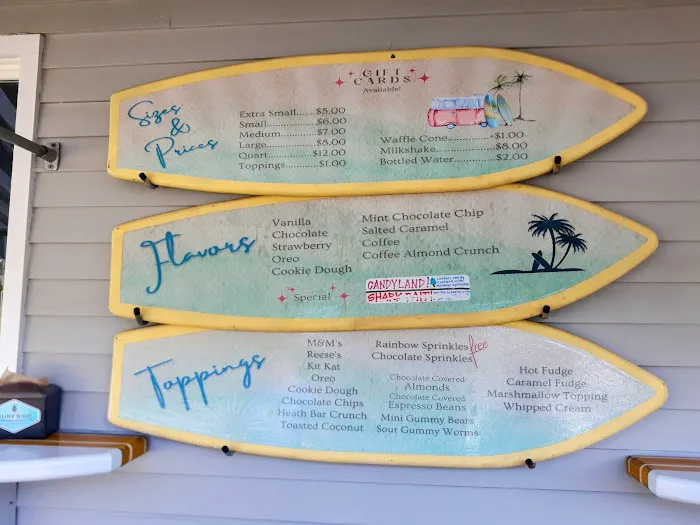 GIFT
CARDS
Available!
Sizes
&
Prices
Extra Small......$5.00
Small...............$6.00
Medium..........$7.00
Large...............$8.00
Quart.............$12.00
Toppings.........$1.00
Waffle Cone............+$1.00
Milkshake.................$8.00
Bottled Water............$2.00
Flavors
Vanilla
Chocolate
Strawberry
Oreo
Cookie Dough
Mint Chocolate Chip
Salted Caramel
Coffee
Coffee Almond Crunch
Special
CANDYLAND!
Toppings
M&M's
Reese's
Kit Kat
Oreo
Cookie Dough
Chocolate Chips
Heath Bar Crunch
Toasted Coconut
Rainbow Sprinkles
Chocolate Sprinkles
free
Chocolate Covered
Almonds
Chocolate Covered
Espresso Beans
Mini Gummy Bears
Sour Gummy Worms
Hot Fudge
Caramel Fudge
Marshmallow Topping
Whipped Cream